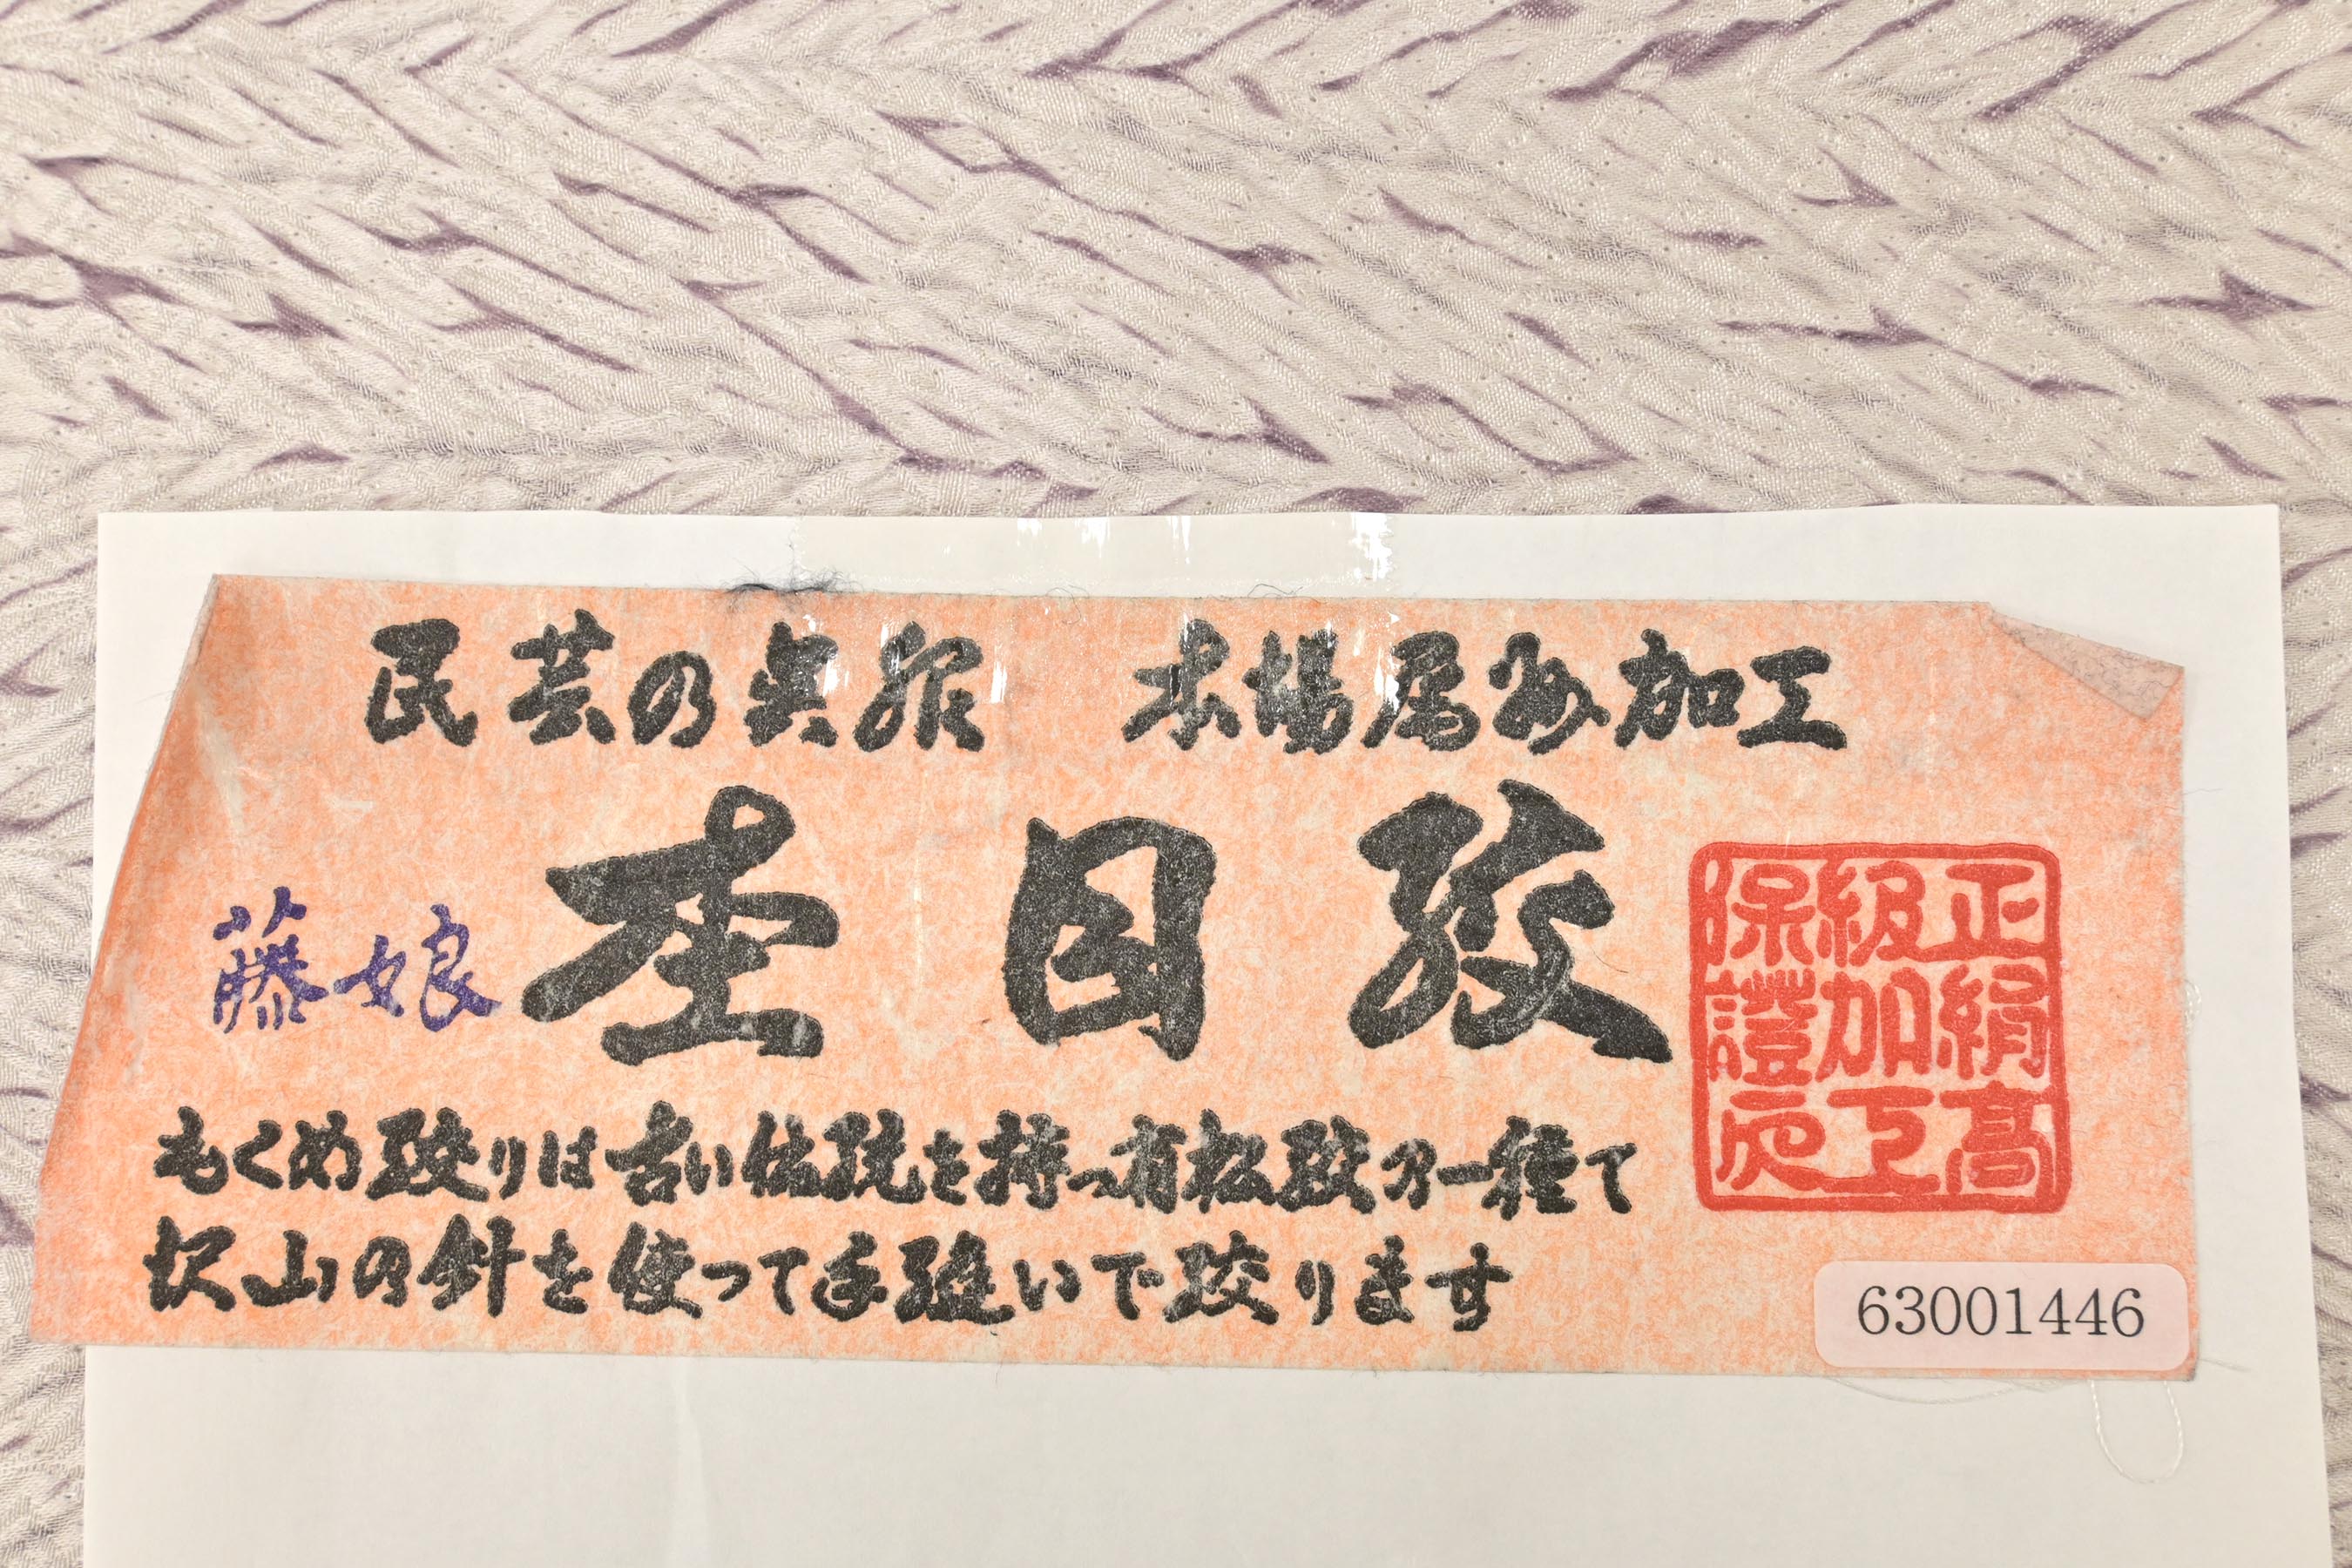 民芸の呉服　本場尾州加工
杢目絞
藤娘
もくめ絞りは古い伝統を持つ有松絞の一種で
沢山の針を使って手縫いで絞ります
正絹高
級加工
保證之
63001446